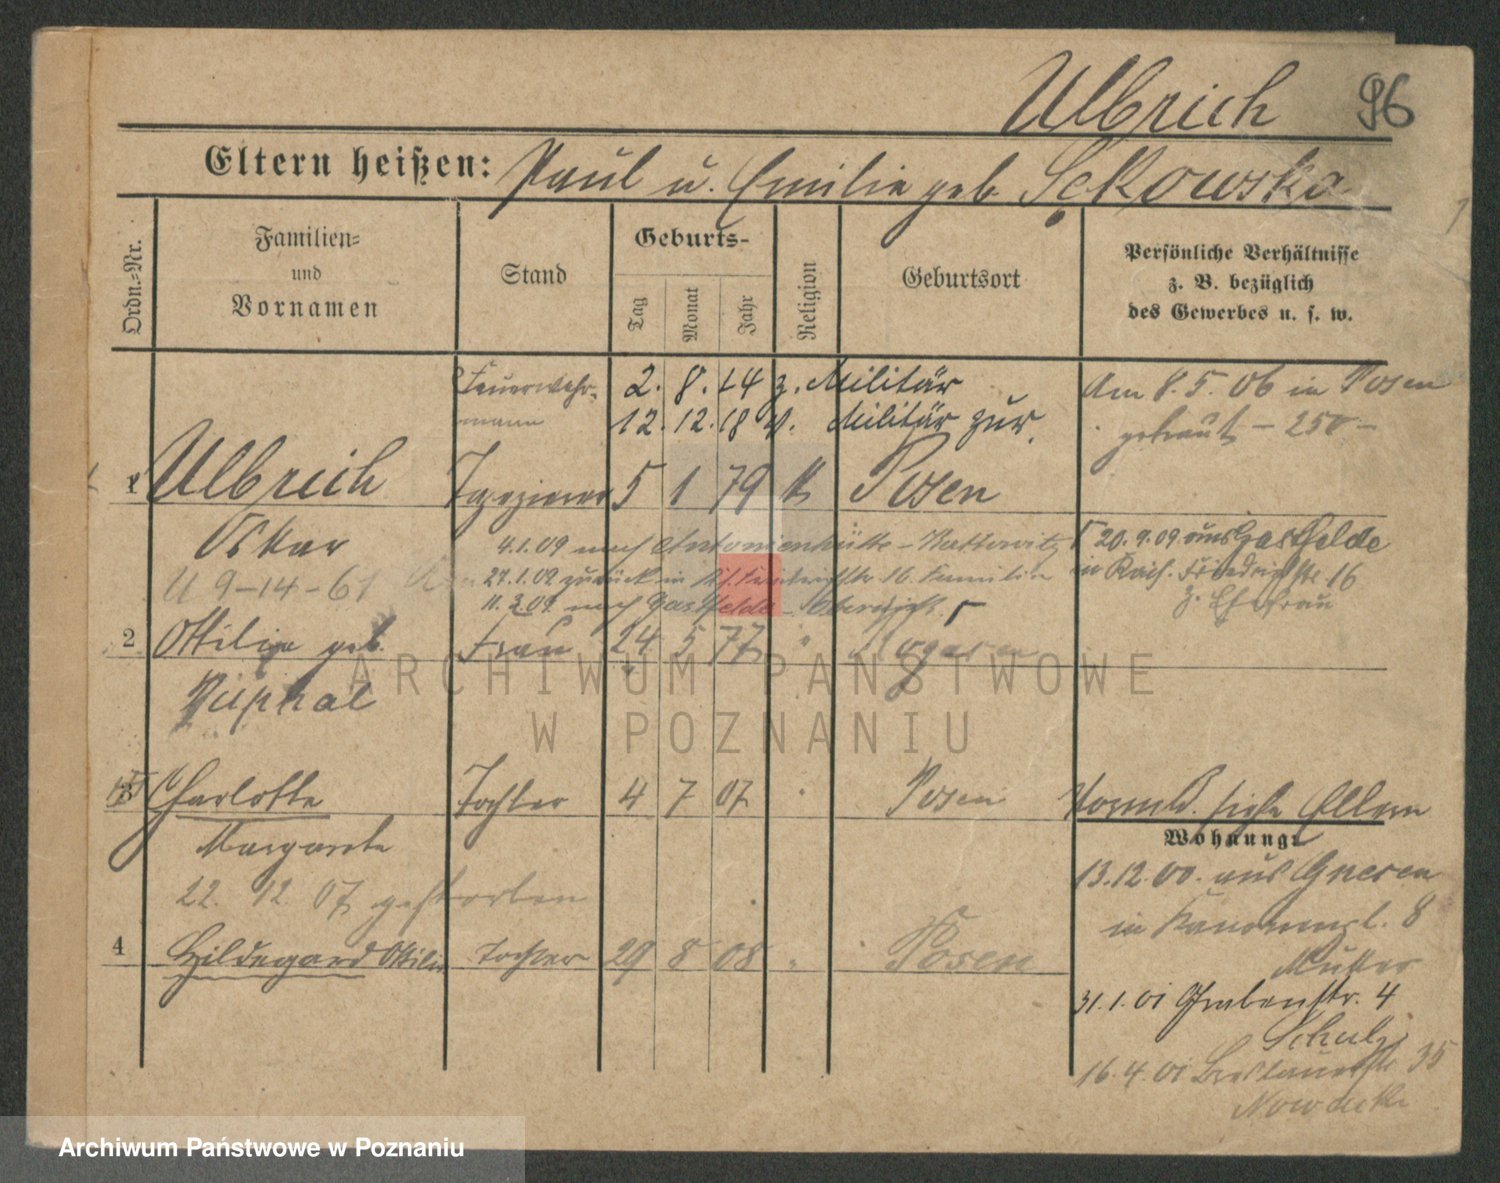 Ulbrich 96
Eltern heißen: Paul u. Emilie geb. Sękowska
Ordn.-Nr.
Familien-
und
Vornamen
Stand
Geburts-
Tag
Monat
Jahr
Religion
Geburtsort
Persönliche Verhältnisse
z. B. bezüglich
des Gewerbes u. s. w.
Feuerwehr- 2. 8. 14 z. Militär Am 8.5.06 in Posen
mann 12. 12. 18 v. Militär zur. getraut – 250 –
1 Ulbrich Tapezierer 5 1 79 k Posen
Oskar
4.1.09 nach Antonienhütte – Kattowitz
20.9.09 aus Gastfelde
U 9-14-61
27.1.09 zurück in 16. Familie
in Kais. Friedrichstr 16
11.3.09. nach Gastfelde
z. Ehefrau
2 Ottilie geb. Frau 24 5 77 " Rogasen
3 Charlotte Tochter 4 7 07 Posen
Margarete
22. 12 07 gestorben
4 Hildegard Ottilie Tochter 29 8 08 " Posen
Vormd. siehe Eltern
Wohnung:
13.12.00. aus Gnesen
in Kanonenpl. 8
Mutter
31.1.01 Grabenstr. 4
Schulz
16.4.01 Breslauerstr 35
ARCHIWUM PAŃSTWOWE
W POZNANIU
Archiwum Państwowe w Poznaniu